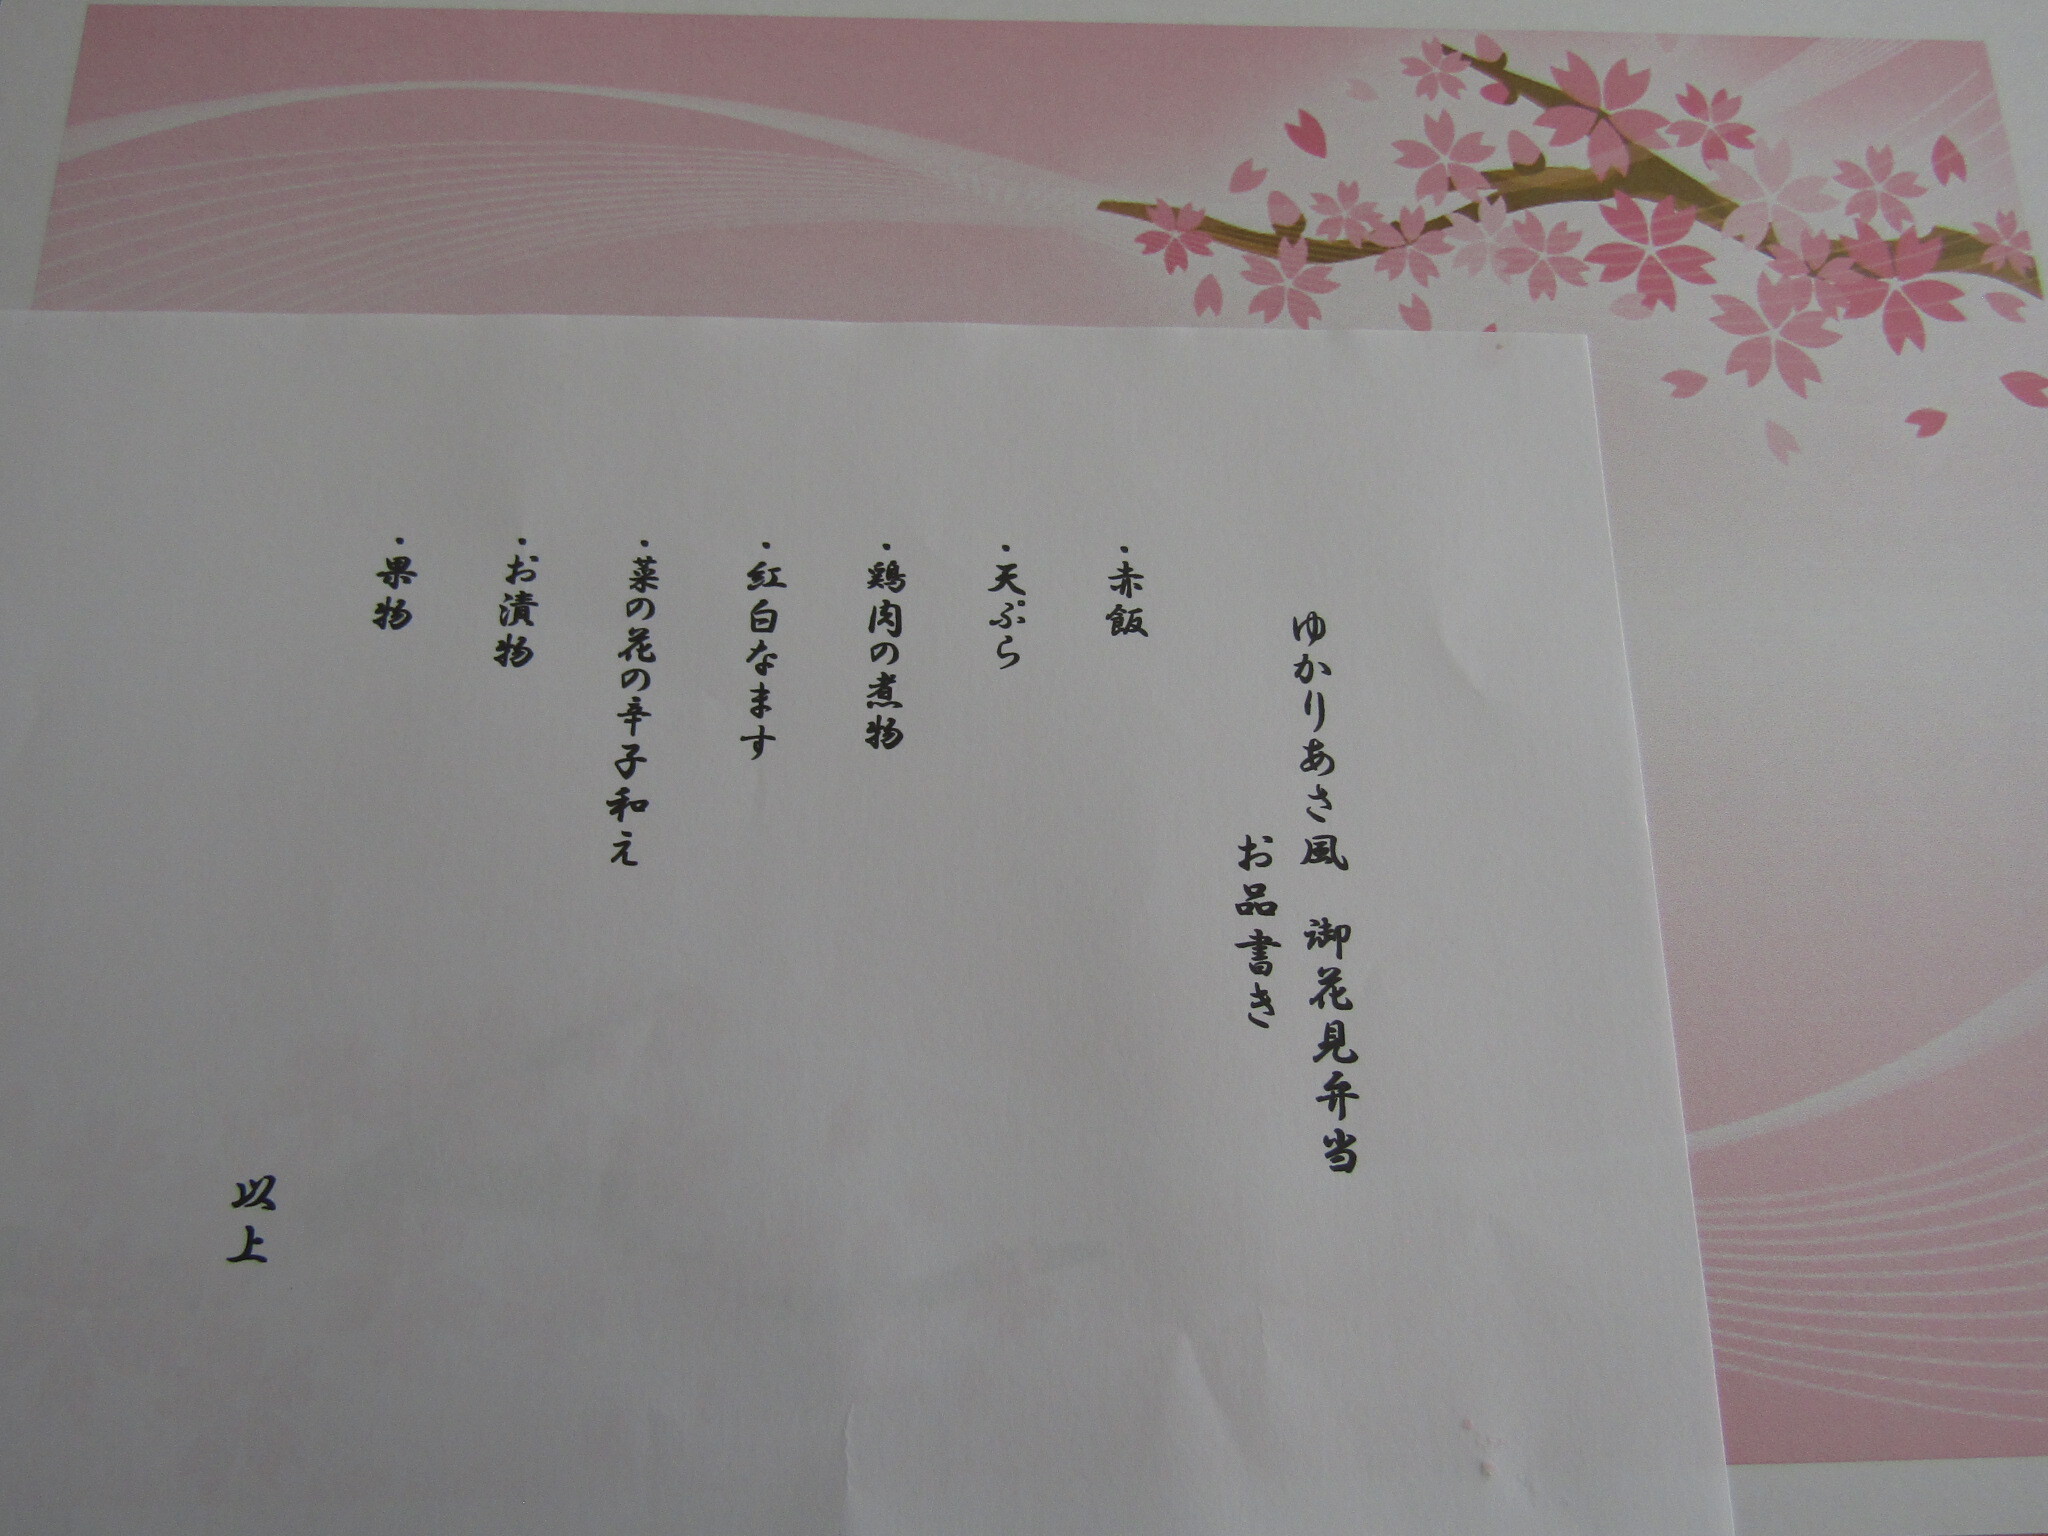 ゆかりあさ風　御花見弁当
お品書き
・赤飯
・天ぷら
・鶏肉の煮物
・紅白なます
・菜の花の辛子和え
・お漬物
・果物
以上